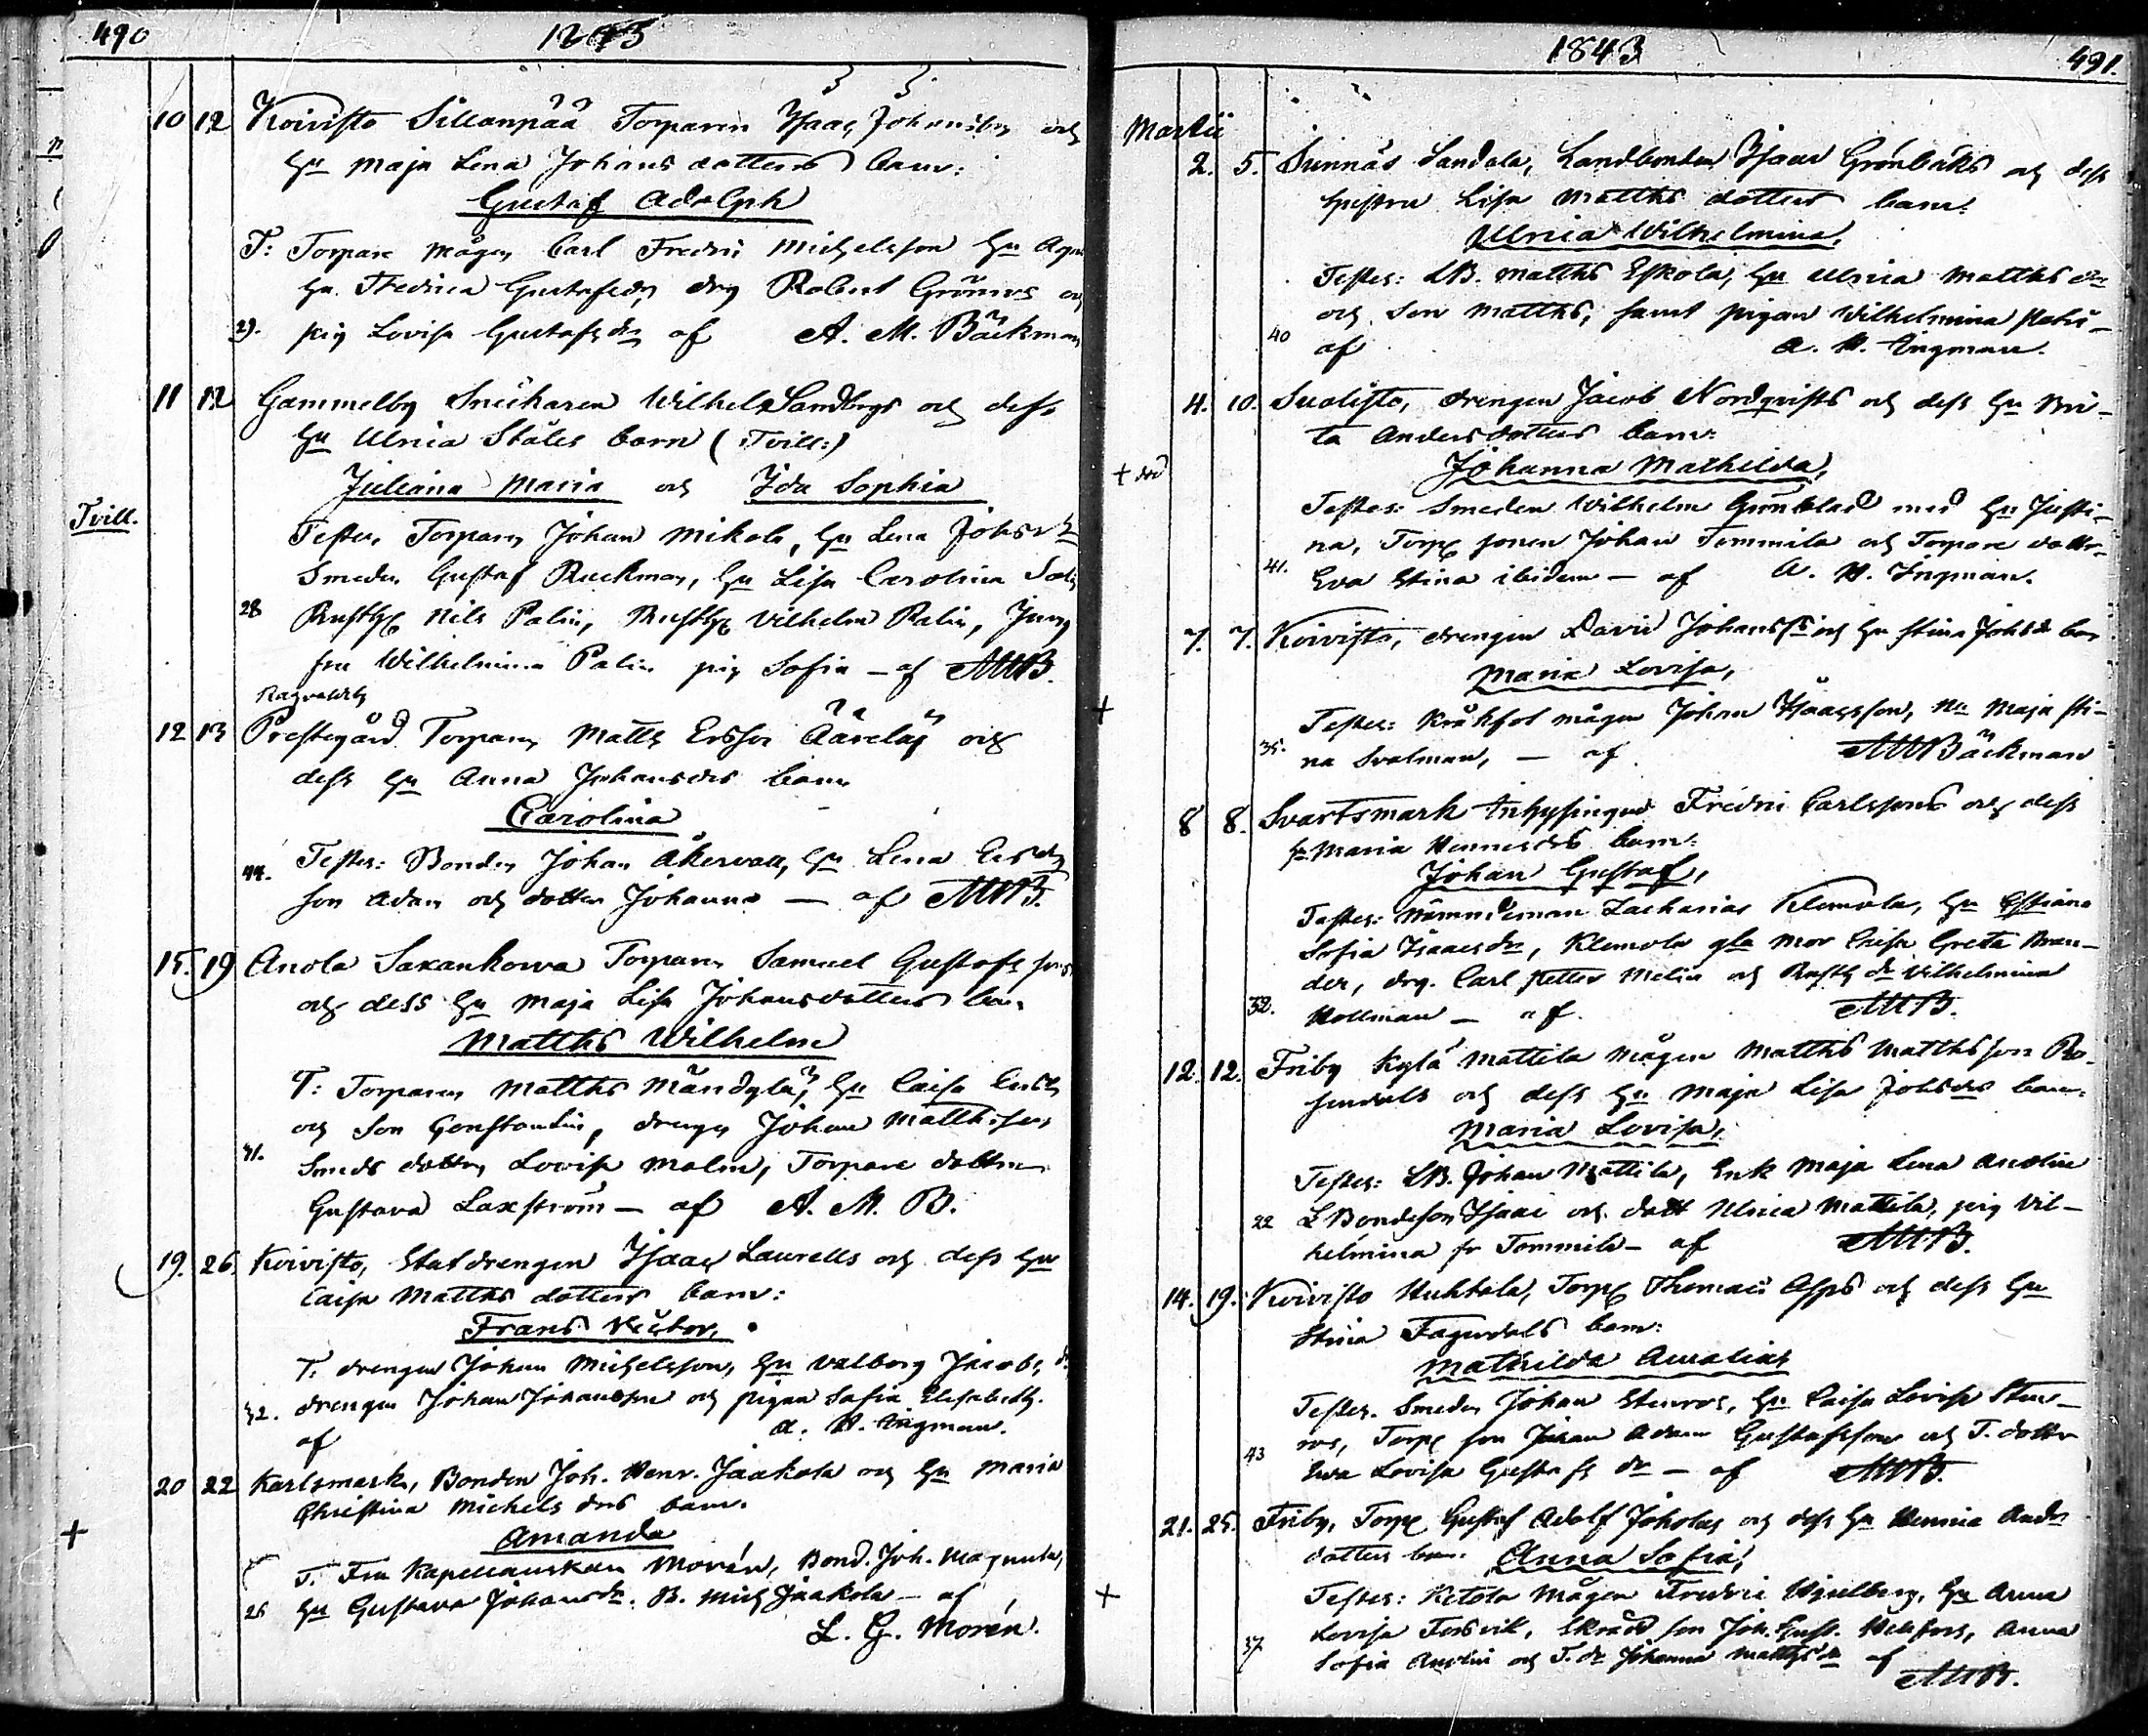 490
1843
10 12 Koivisto Sillanpää Torparen Isaac Johansons och
Hu Maja Lena Johans dotters barn:
Gustaf Adolph
T: Torpare mågen Carl Fredric Michelsson Hu
Hu. Fredrica Gustafsdr, drg Robert Grönros och
29. pig Lovisa Gustafsdr af A. M. Bäckman
11 12 Gammelby Snickaren Wilhelm Sandbergs och dess
Hu Ulrica Ståles barn (Tvill:)
Juliana Maria och Ida Sophia
Tvill.
Testes, Torparen Johan Mikola, Hu Lena Johsdr
Smeden Gustaf Ruckman, Hu Lisa Carolina
28 Rusth Nils Palin, Rusth Vilhelm Palin, Jung
fru Wilhelmina Palin pig Sofia – af AMB.
12 13 Prestegård Torparen Matts Ersson Äärelä och
dess Hu Anna Johansdrs barn
Carolina
44. Testes: Bonden Johan Åkervall, Hu Lena Ersdr
son Adam och dotter Johanna – af AMB.
15. 19 Anola Saxankorva Torparen Samuel Gustafssons
och dess Hu Maja Lisa Johansdotters barn
Matths Wilhelm
T: Torparen Matths Mändylä, Hu Caisa
och Son Constantin, drengen Johan Matthsson
41. Smeds dottren Lovisa Malm, Torpare dottren
Gustava Laxström – af A. M. B.
19. 26. Koivisto, Statdrengen Isaac Laurells och dess Hu
Caisa Matths dotters barn:
Frans Victor.
T: drengen Johan Michelsson, Hu Valborg Jacobs dr
32. drengen Johan Johansson och pigan Sofia Elisabeth.
af A. H. Ingman.
20 22 Karlsmark, Bonden Joh. Henr. Jaakola och Hu Maria
Christina Michels drs barn.
+ Amanda
T. Fru Kapellanskan Morén, Bond. Joh. Magnula,
26 Hu Gustava Johansdr. B. Mich Jaakola – af
L. G. Morén.
1843
491.
Martii
2. 5. Sunnäs Sandala, Landbonden Isaac Grönbäks och dess
hustru Lisa Matths dotters barn:
Ulrica Wilhelmina.
Testes: LB. Matths Eskola, Hu Ulrica Matths dr
och Son Matths, samt pigan Wilhelmina
40 af A. H. Ingman.
4. 10. Sualisto, drengen Jacob Nordqvists och dess Hu Bri-
ta Andersdotters barn:
+ död Johanna Mathilda,
Testes: Smeden Wilhelm Grönblad med Hu Justi-
na, Torp sonen Johan Tommila och Torpare dottr
41. Eva Stina ibidem – af A. H. Ingman.
7. 7. Koivisto, drengen David Johanss och Hu Stina Johsdr barn
Maria Lovisa,
+ Testes: Kråkfot mågen Johan Isaacsson, Hu Maja Sti-
35. na Svalman, – af AMBäckman
8 8. Svartsmark Inhysingen Fredric Carlssons och dess
Hu Maria Hennesdrs barn:
Johan Gustaf,
Testes: Nämndeman Zacharias Klemola, Hu
Sofia Isaacsdr, Klemola gla mor Caisa Greta Bran-
der, drg. Carl Petter Melin och Rusth dr Vilhelmina
32. Hollman – af AMB.
12. 12. Friby Kylä Mattila mågen Matths Matthsson Ro-
sendals och dess Hu Maja Lisa Johsdrs barn:
Maria Lovisa,
Testes: LB. Johan Mattila, Enk Maja Lena Anolin
22 L Bondeson Isaac och dott Ulrica Mattila, pig Vil-
helmina fr Tommila – af AMB.
14. 19. Koivisto Huhtala, Torp Thomas Asps och dess Hu
Stina Fagerdals barn:
Mathilda Auralia
Testes. Smeden Johan Stenros, Hu Caisa Lovisa Sten-
43 ros, Torp son Johan Adam Gustafsson och T. dottr
Eva Lovisa Gustafs dr – af AMB.
21. 25. Friby, Torp Gustaf Adolf Joholas och dess Hu Henrica Anders
dotters barn: Anna Sofia,
+ Testes: Ketola Mågen Fredric Hjelberg, Hu Anna
Lovisa Forsvik, Skradd son Joh. Gust. Helsfors, Anna
37 Sofia Anolin och T. dr Johanna Matthsdr af
AMB.